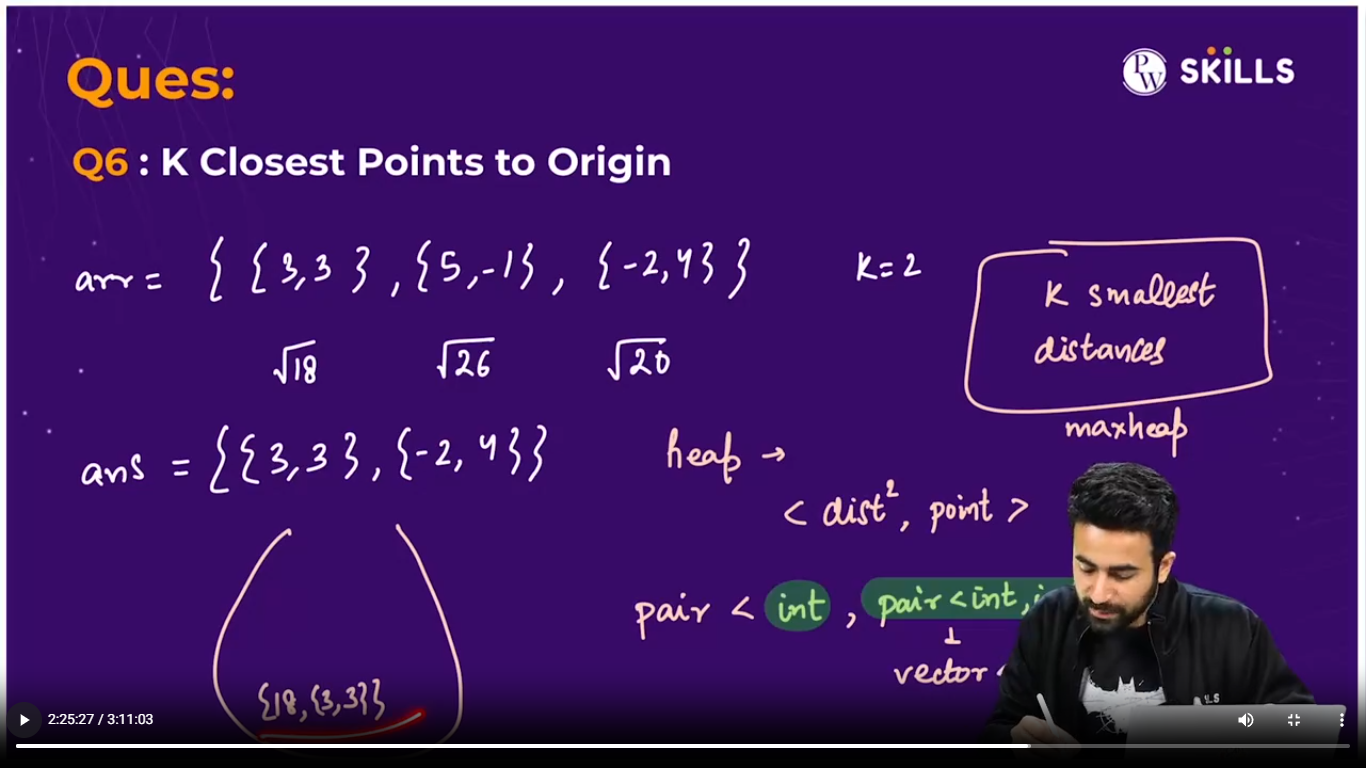 Ques:
PW SKILLS
Q6 : K Closest Points to Origin
arr = { {3,3} , {5,-1} , {-2,4} }
K=2
K smallest
distances
√18 √26 √20
maxheap
ans = {{3,3} , {-2, 4}}
heap →
< dist², point >
pair < int , pair <int,
vector <
{18,{3,3}}
LS
2:25:27 / 3:11:03